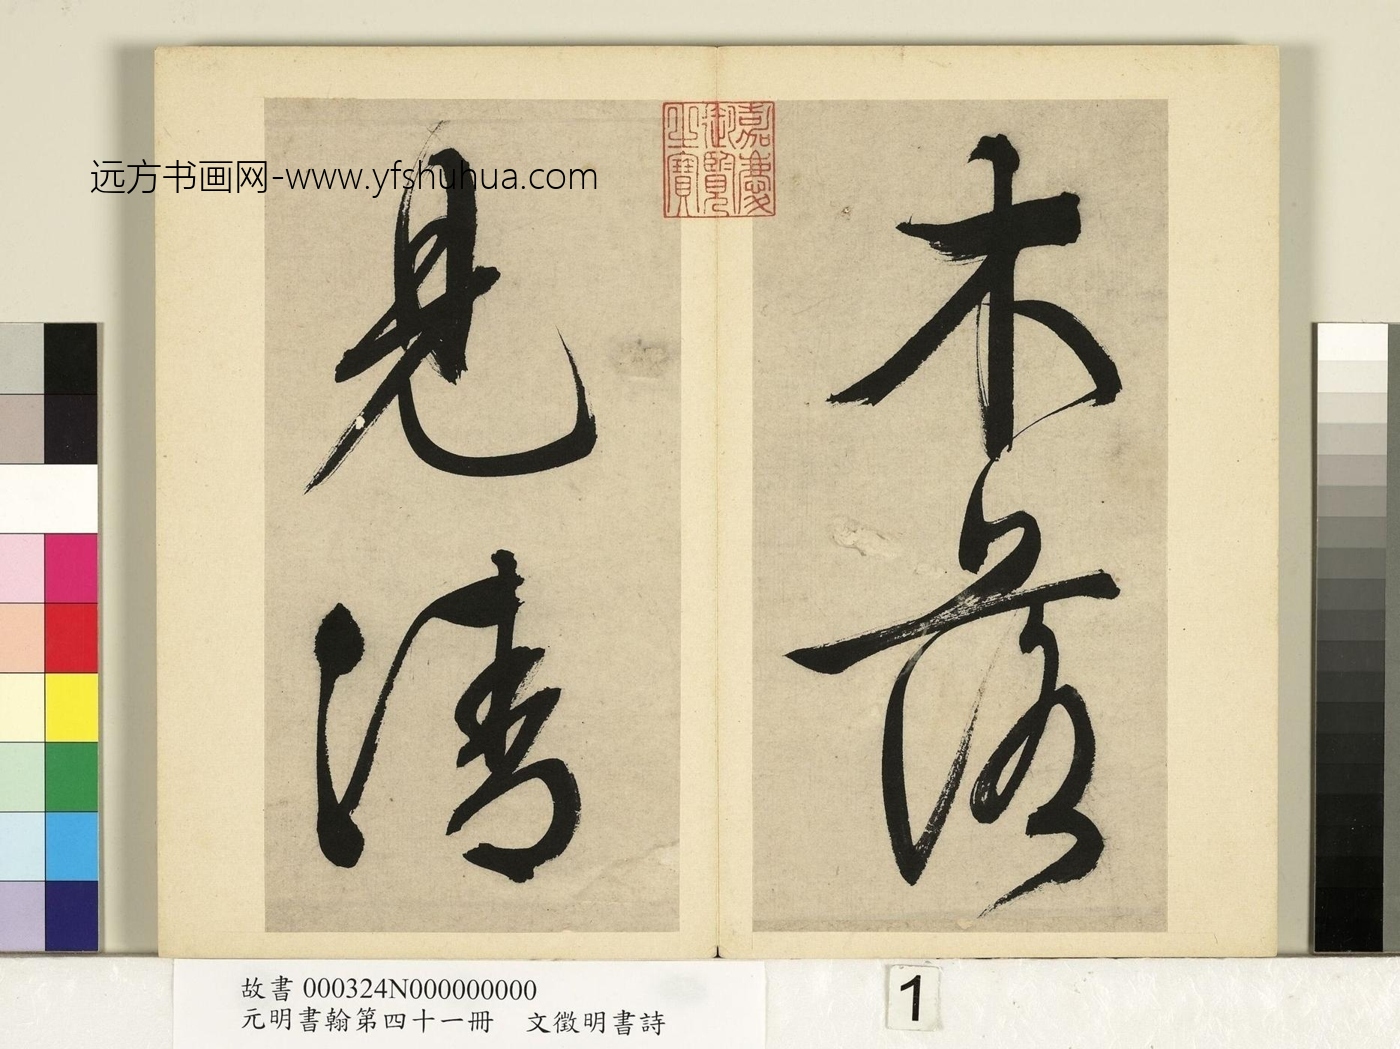 木落
見清
嘉慶
御覽
之寶
远方书画网-www.yfshuhua.com
故書 000324N000000000
元明書翰第四十一冊 文徵明書詩
1